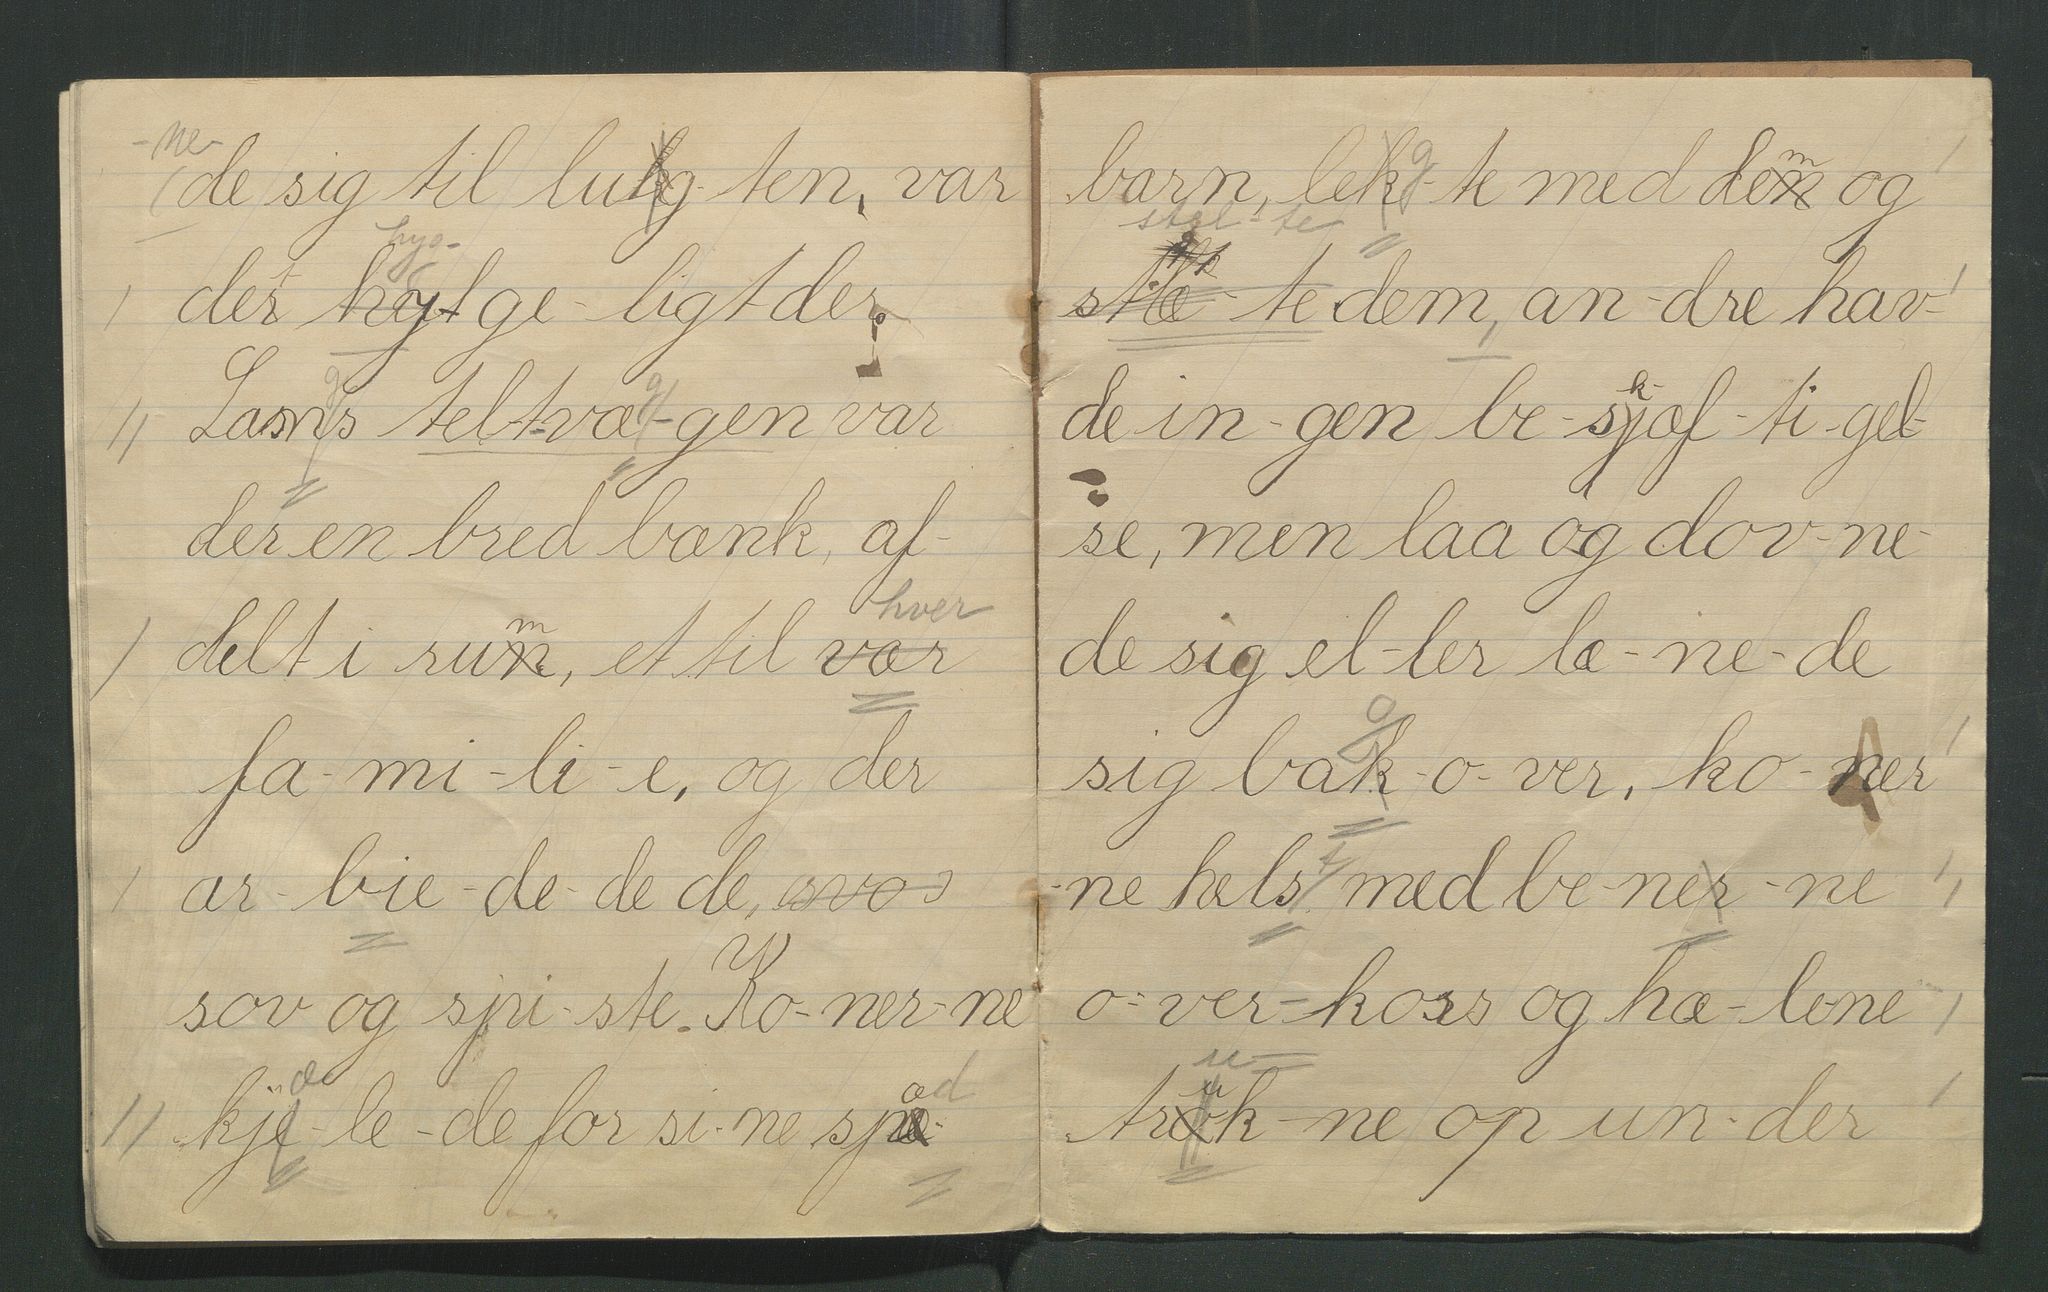 -ne-
de sig til lukg-ten, var
hyg-
det hylge-ligt der.
g g
Lans telt-væ-gen var
der en bred bænk, af-
hver
delt i rum, et til vær
fa-mi-li-e, og der
ar-bie-de-de de,
sov og spi-ste. Ko-ner-ne
æ æd
kje-le-de for si-ne spæ-
barn, lek-te med dem og
g m
stel-te
stæ-te dem, an-dre hav-
k-
de in-gen be-sjæf-ti-gel-
se, men laa og dov-ne-
de sig el-ler læ-ne-de
g
sig bak-o-ver, ko-ner
t
-ne hels med be-ner-ne
o-ver-kors og hæ-lene
u
trøk-ne op un-der